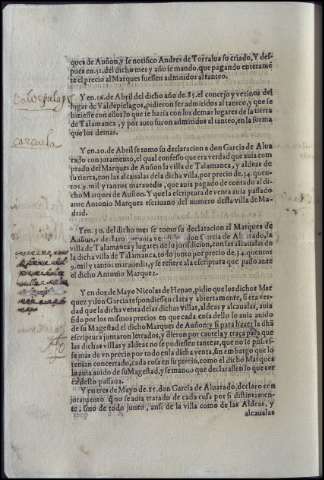 ques de Auñon, y se notificò Andres de Torralua su criado, Y des-
pues en 11. del dicho mes y año se mandò, que pagando enteramē
te el precio al Marques fuessen admitidos al tanteo.
Y en 16. de Abril del dicho año de 85. el concejo y vezinos del
lugar de Valdepielagos, pidieron ser admitidos al tanteo, y que se
hiziesse con ellos lo que se haria con los demas lugares de la tierra
de Talamanca, y por auto fueron admitidos al tanteo, en la forma
que los demas.
Y en 20. de Abril se tomò su declaracion a don Garcia de Alua
rado con juramento, el qual confessò que era verdad que auia com
prado del Marques de Auñon la villa de Talamanca, y aldeas de
su tierra, con las alcaualas de la dicha villa, por precio de 34. quen-
tos, 9. mil y tantos marauedis, que auia pagado de contado al di-
cho Marques de Auñon. Y que la escriptura de venta auia passado
ante Antonio Marquez escriuano del numero desta villa de Ma-
drid.
Y en 30. del dicho mes se tomò su declaracion al Marques de
Auñon, y declarò don Garcia de Aluarado, la
villa de Talamanca y lugares de su jurisdicion, con las alcaualas de
la dicha villa de Talamanca, todo junto por precio de 34. quentos
9. mil y tantos marauedis, y se refiere a la escriptura que passò ante
el dicho Antonio Marquez.
Y en dos de Mayo Nicolas de Henao, pidio que los dichos Mar
ques y don Garcia respondiessen clara y abiertamente, si era ver-
dad que la dicha venta de las dichas villas, aldeas y alcaualas, auia
sido por los mismos precios en que cada cosa dello lo auia auido
de su Magestad el dicho Marques de Auñon; y si para hazer la dicha
escriptura juntaron letrados, y dieron por cautela y traça para que
las dichas villas y aldeas no se pudiessen tantear, que no se pusies-
se mas de vn precio por todo en la dicha venta, sin embargo que lo
tenian concertado, cada cosa en su precio, como el dicho Marques
la auia auido de su Magestad, y se mandò que declarassen lo que cer
ca desto passaua.
Y en tres de Mayo de 85. don Garcia de Aluarado, declarò con
juramento q̃ no se auia tratado de cada cosa por si distintamen-
te, sino de todo junto, assi de la villa como de las Aldeas, y
alcaualas